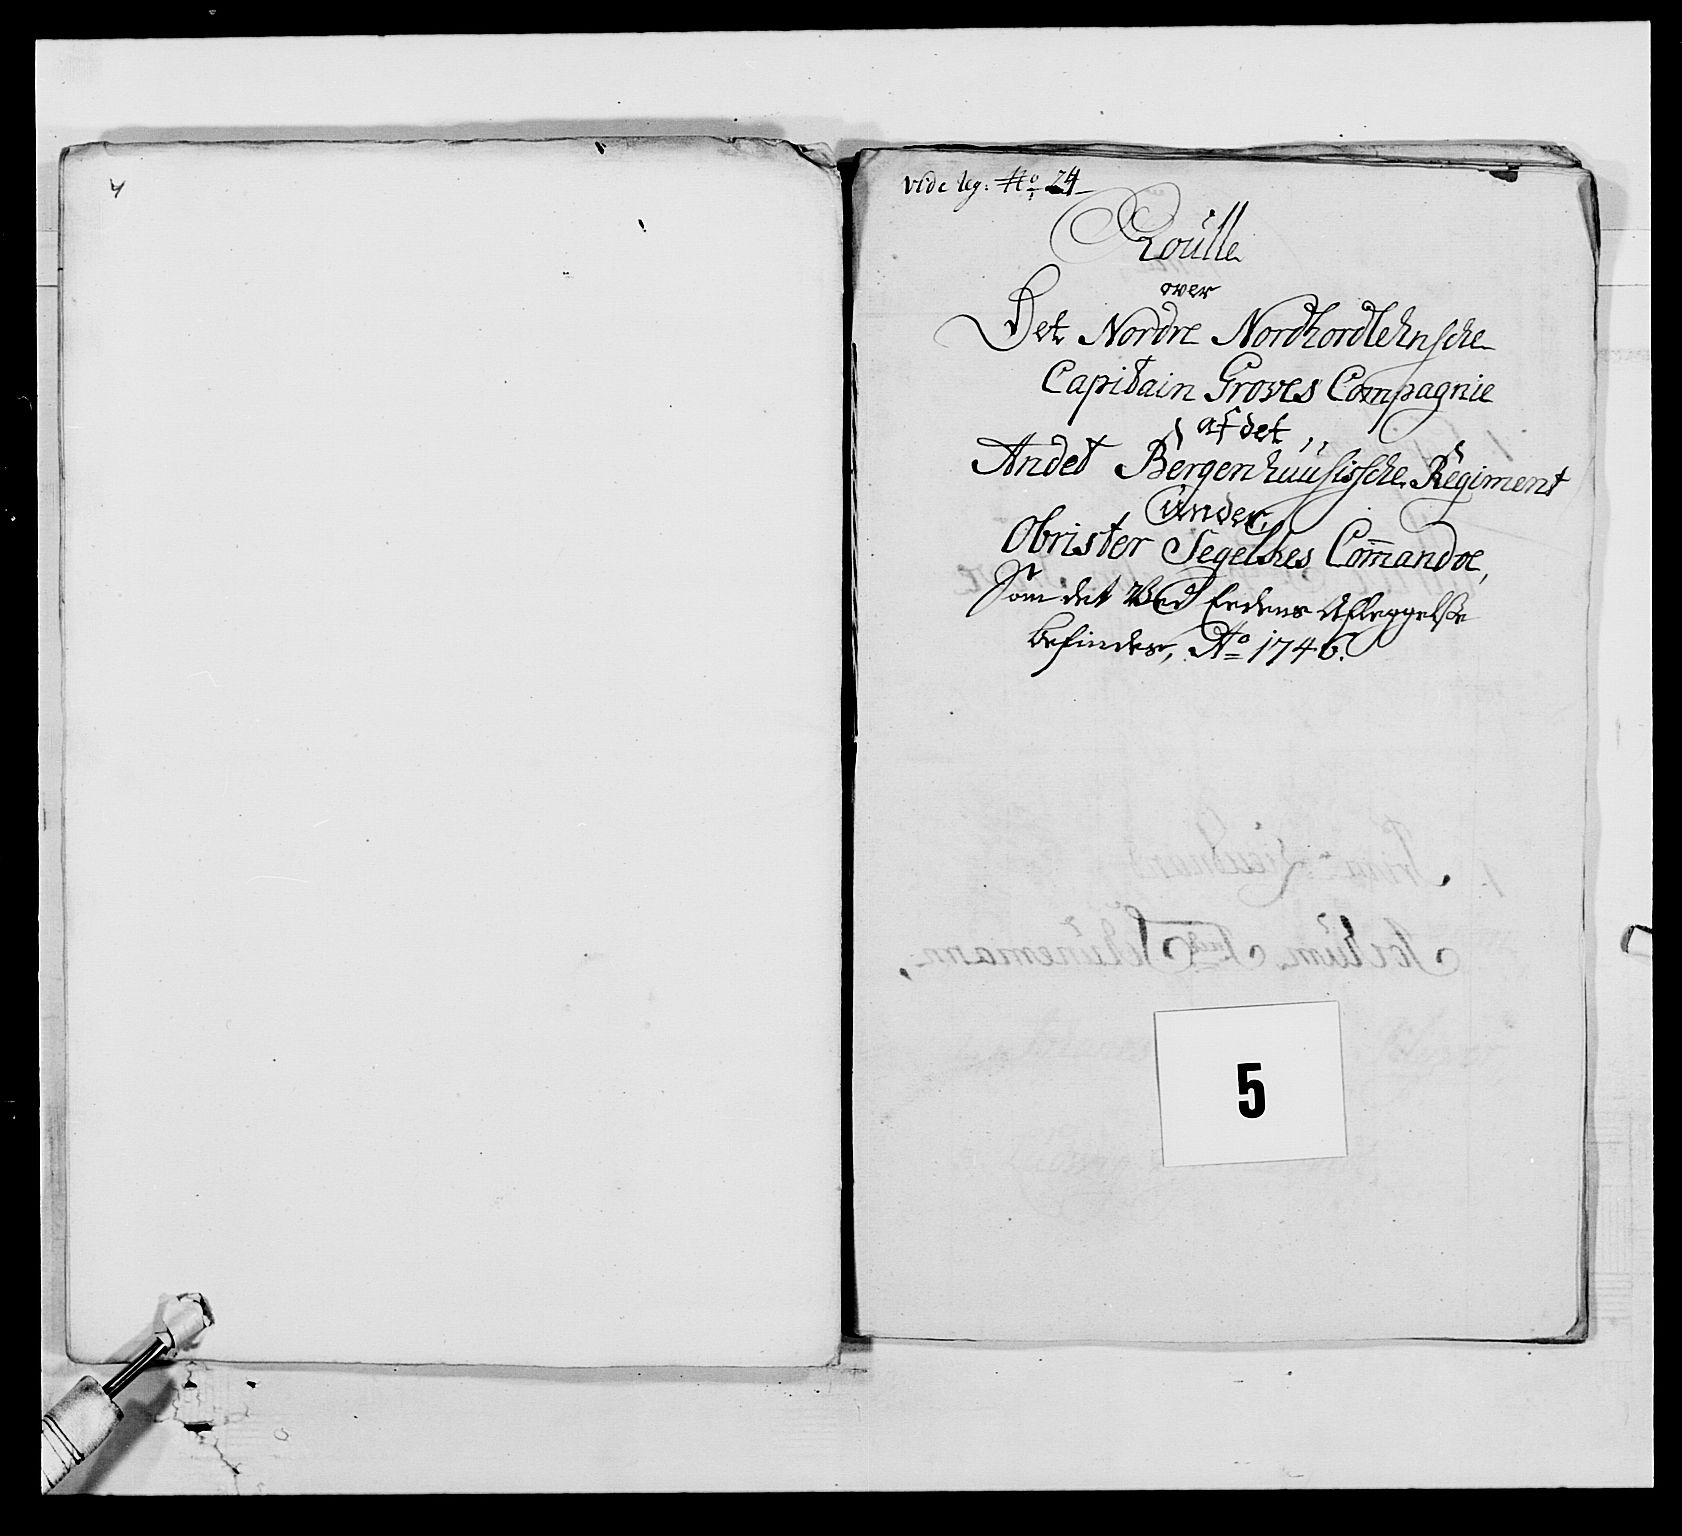 4
vide leg: No 24
Roulle
over
Det Nordre Nordhordlehnsche
Capitain Groves Compagnie
af det
Andet Bergenhuusissche Regiment
under
Obrister Segelkes Com̅andoe,
Som det Ved Eedens Afleggelsse
befindes, Ao 1746.
5